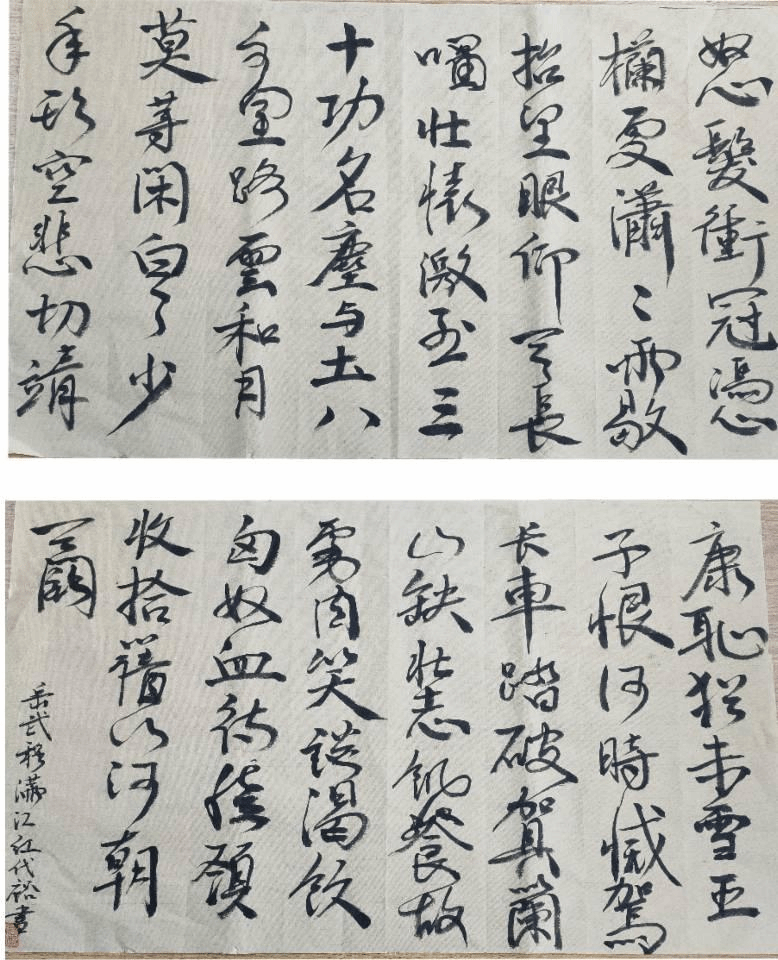 怒髮衝冠憑
欄處瀟々雨歇
抬望眼仰天長
嘯壯懷激烈三
十功名塵与土八
千里路雲和月
莫等閑白了少
年頭空悲切靖
康恥猶未雪臣
子恨何時滅駕
长車踏破賀蘭
山缺壯志飢餐胡
虜肉笑談渴飲
匈奴血待從頭
收拾舊山河朝
天闕
岳武穆滿江红代裕書